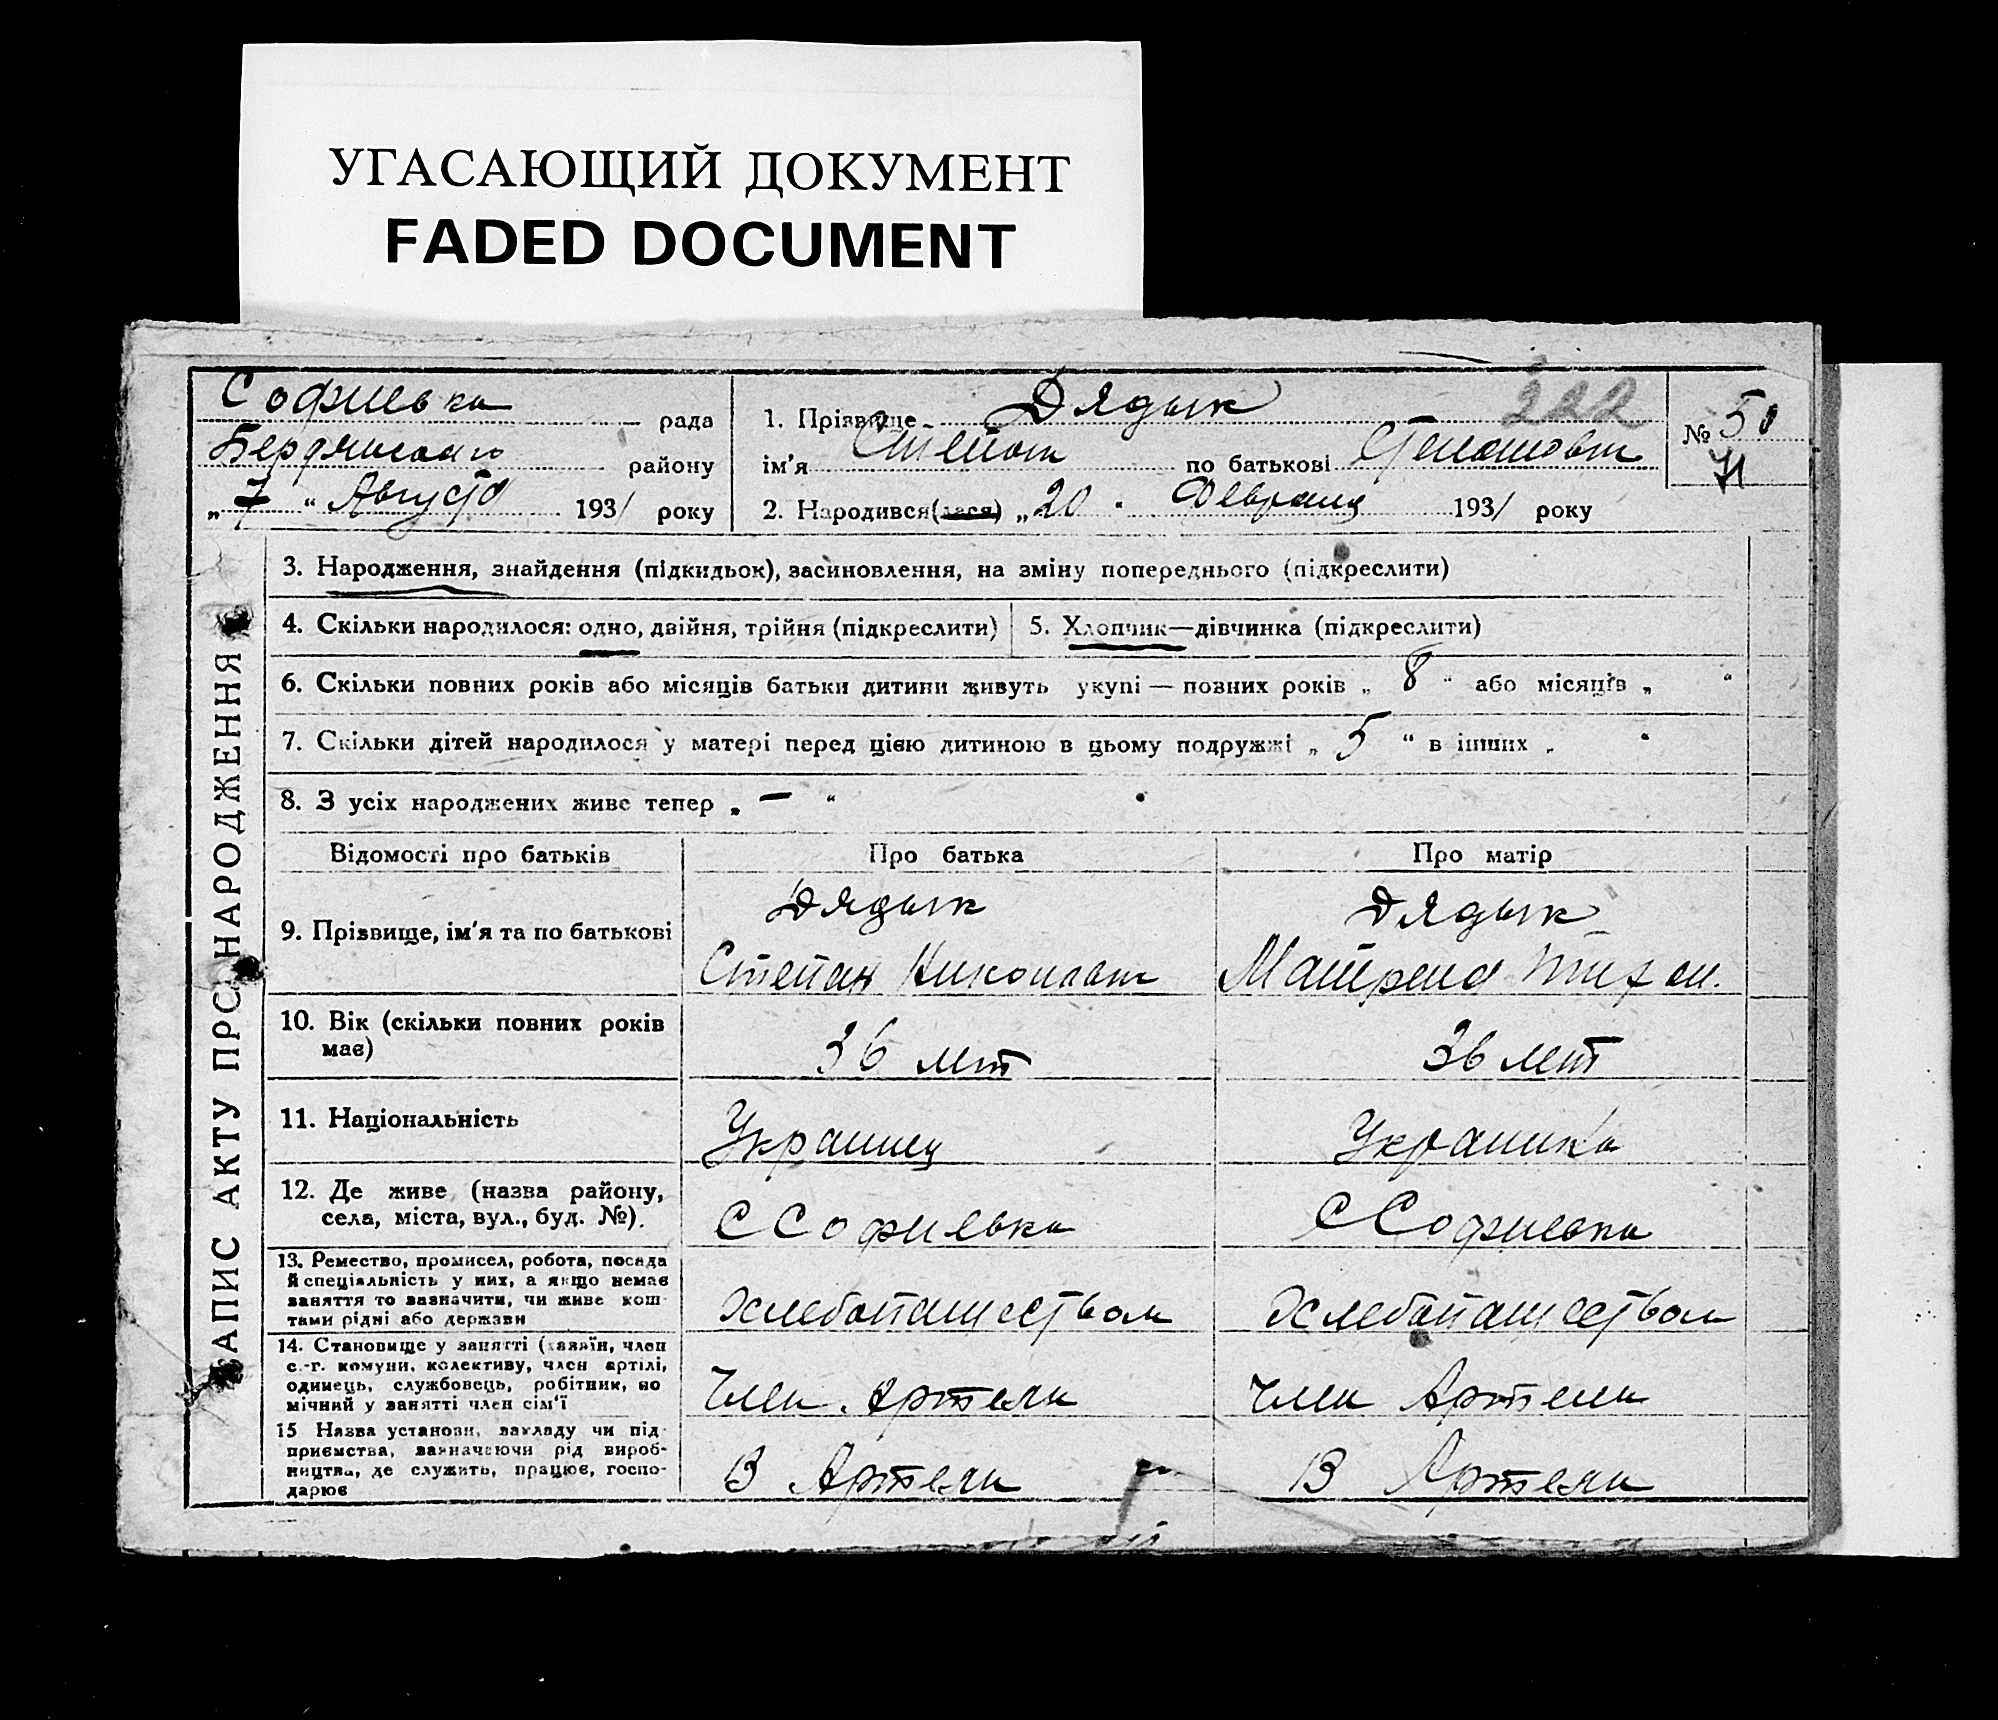 УГАСАЮЩИЙ ДОКУМЕНТ
FADED DOCUMENT
Софиевка рада
Бердянского району
„ 7 “ Августа 1931 року
1. Прізвище Дядык
222
ім'я Степан по батькові Степанович
2. Народився(лася) „ 20 “ Февраля 1931 року
№ 50
71
ЗАПИС АКТУ ПРО НАРОДЖЕННЯ
3. Народження, знайдення (підкидьок), засиновлення, на зміну попереднього (підкреслити)
4. Скільки народилося: одно, двійня, трійня (підкреслити)
5. Хлопчик—дівчинка (підкреслити)
6. Скільки повних років або місяців батьки дитини живуть укупі — повних років „ 8 “ або місяців „ “
7. Скільки дітей народилося у матері перед цією дитиною в цьому подружжі „ 5 “ в інших „ “
8. З усіх народжених живе тепер „ — “
Відомості про батьків Про батька Про матір
9. Прізвище, ім'я та по батькові
Дядык
Степан Николаев
Дядык
Матрена Тихон.
10. Вік (скільки повних років
має)
36 лет
36 лет
11. Національність
Украинец
Украинка
12. Де живе (назва району,
села, міста, вул., буд. №).
С Софиевка
С Софиевка
13. Ремество, промисел, робота, посада
й спеціяльність у них, а якщо немає
заняття то зазначити, чи живе кош-
тами рідні або держави
Хлебопашеством
Хлебопашеством
14. Становище у занятті (хазяїн, член
с.-г. комуни, колективу, член артілі,
одинець, службовець, робітник, по
мічний у занятті член сім'ї
Член Артели
Член Артели
15 Назва установи, закладу чи під-
приємства, зазначаючи рід вироб-
ництва, де служить, працює, госпо-
дарює
В Артели
В Артели